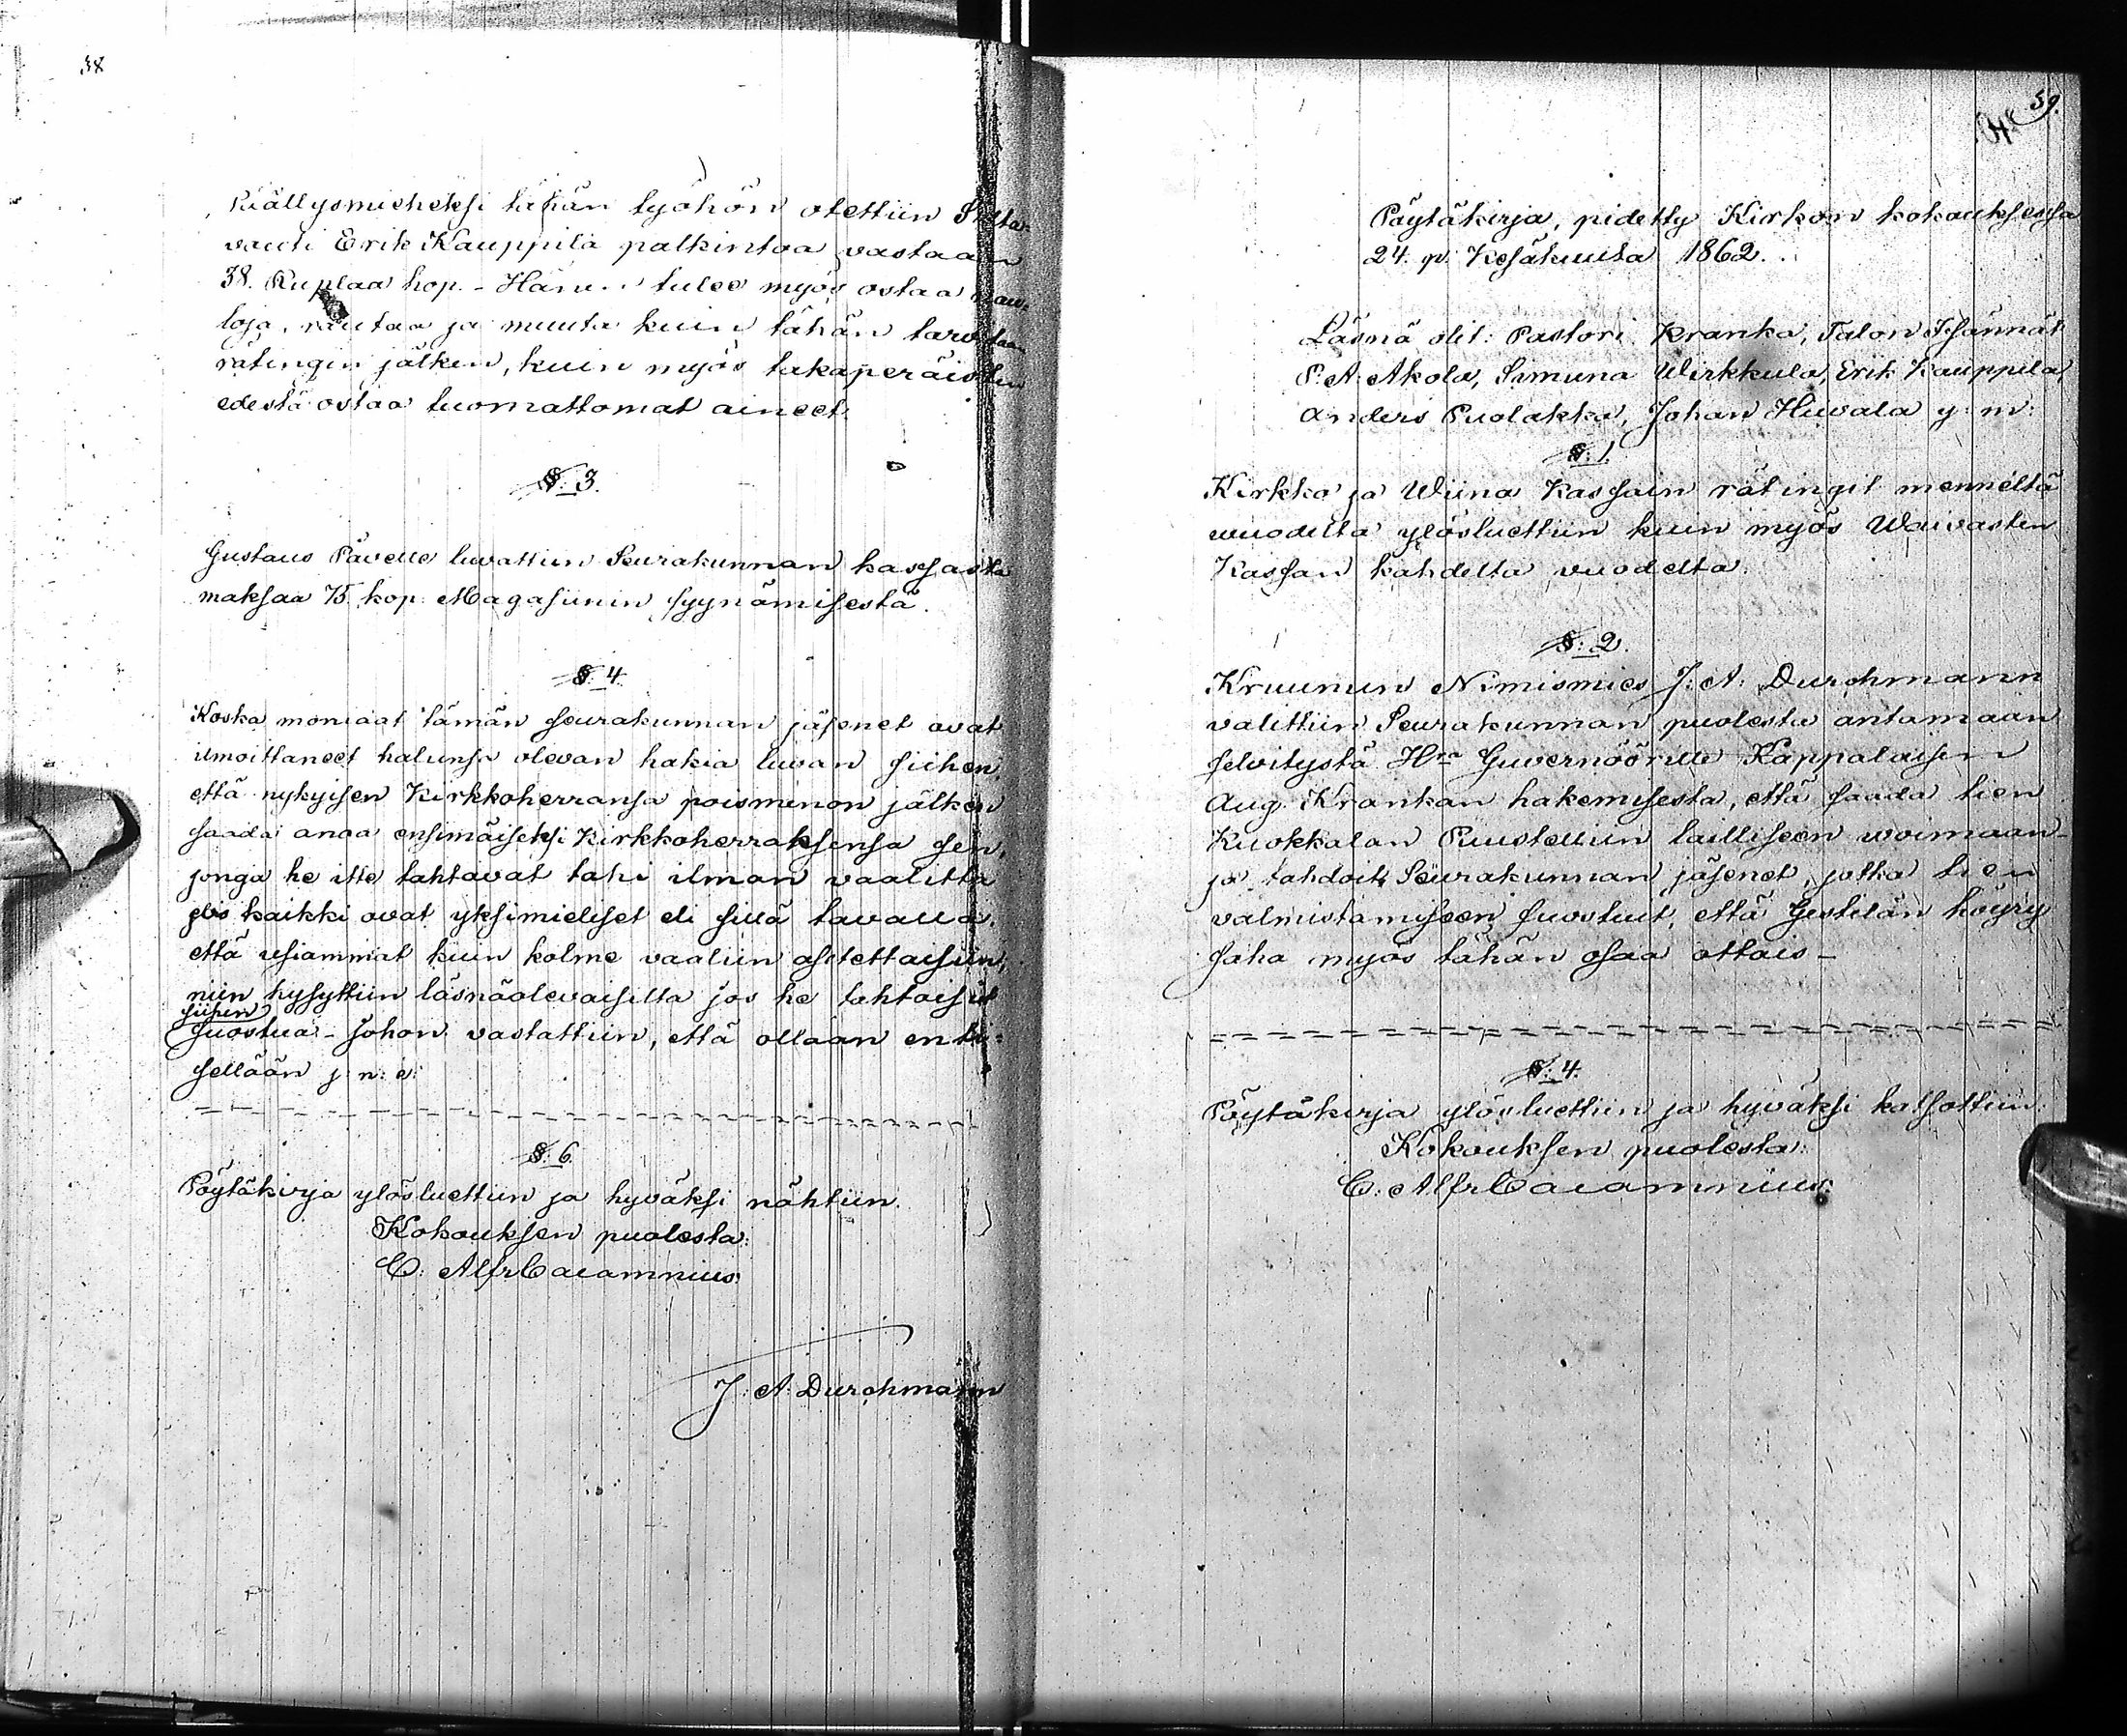 58
Päällysmieheksi tähän työhön otettiin Silta-
vauti Erik Kauppila palkintoa vastaan
38. Ruplaa hop. - Hänen tulee myös ostaa nau-
loja, rautaa ja muuta kuin tähän tarvitaan
rätingin jälken, kuin myös takaperäisten
edestä ostaa tuomattomat aineet.
§: 3.
Gustaus Pävelle luvattiin Seurakunnan kassasta
maksaa 75 kop: Magasiinin syynämisestä.
§: 4.
Koska moniaat tämän seurakunnan jäsenet ovat
ilmoittaneet halunsa olevan hakia luvan siihen,
että nykyisen Kirkkoherransa poismenon jälken
saada anoa ensimäiseksi Kirkkoherraksensa sen,
jonga he itte tahtovat tahi ilman vaalitta
jos kaikki ovat yksimieliset eli sillä tavalla,
että usiammat kuin kolme vaaliin asetettaisiin,
niin kysyttiin läsnäolevaisilta jos he tahtoisit
siihen
suostua - johon vastattiin, että ollaan enti-
sellään j: n: e:
§: 6.
Pöytäkirja ylösluettiin ja hyväksi nähtiin.
Kokouksen puolesta:
C: Alfr Cajamnius
J: A: Durchmann
59.
Pöytäkirja, pidetty Kirkon kokouksessa
24. p: Kesäkuuta 1862.
Läsnä olit: Pastori Kranka, Talon Isännät
P: A: Akola, Simuna Wirkkula, Erik Kauppila,
Anders Puolakka, Johan Hiivala y: m:
§: 1.
Kirkko ja Wiina Kassain rätingit menneltä
vuodelta ylösluettiin kuin myös Waivasten
Kassan kahdelta vuodelta.
§: 2.
Kruunun Nimismies J: A: Durchmann
valittiin Seurakunnan puolesta antamaan
selvitystä Hra Guvernöörille Kappalaisen
Aug. Krankan hakemisesta, että saada tien
Kuokkalan Puustelliin lailliseen voimaan -
ja tahdoit Seurakunnan jäsenet, jotka tien
valmistamiseen suostuit, että Gestilän höyry
saha myös tähän osaa ottais -
§: 4.
Pöytäkirja ylösluettiin ja hyväksi katsottiin
Kokouksen puolesta:
C: Alfr Cajamnius